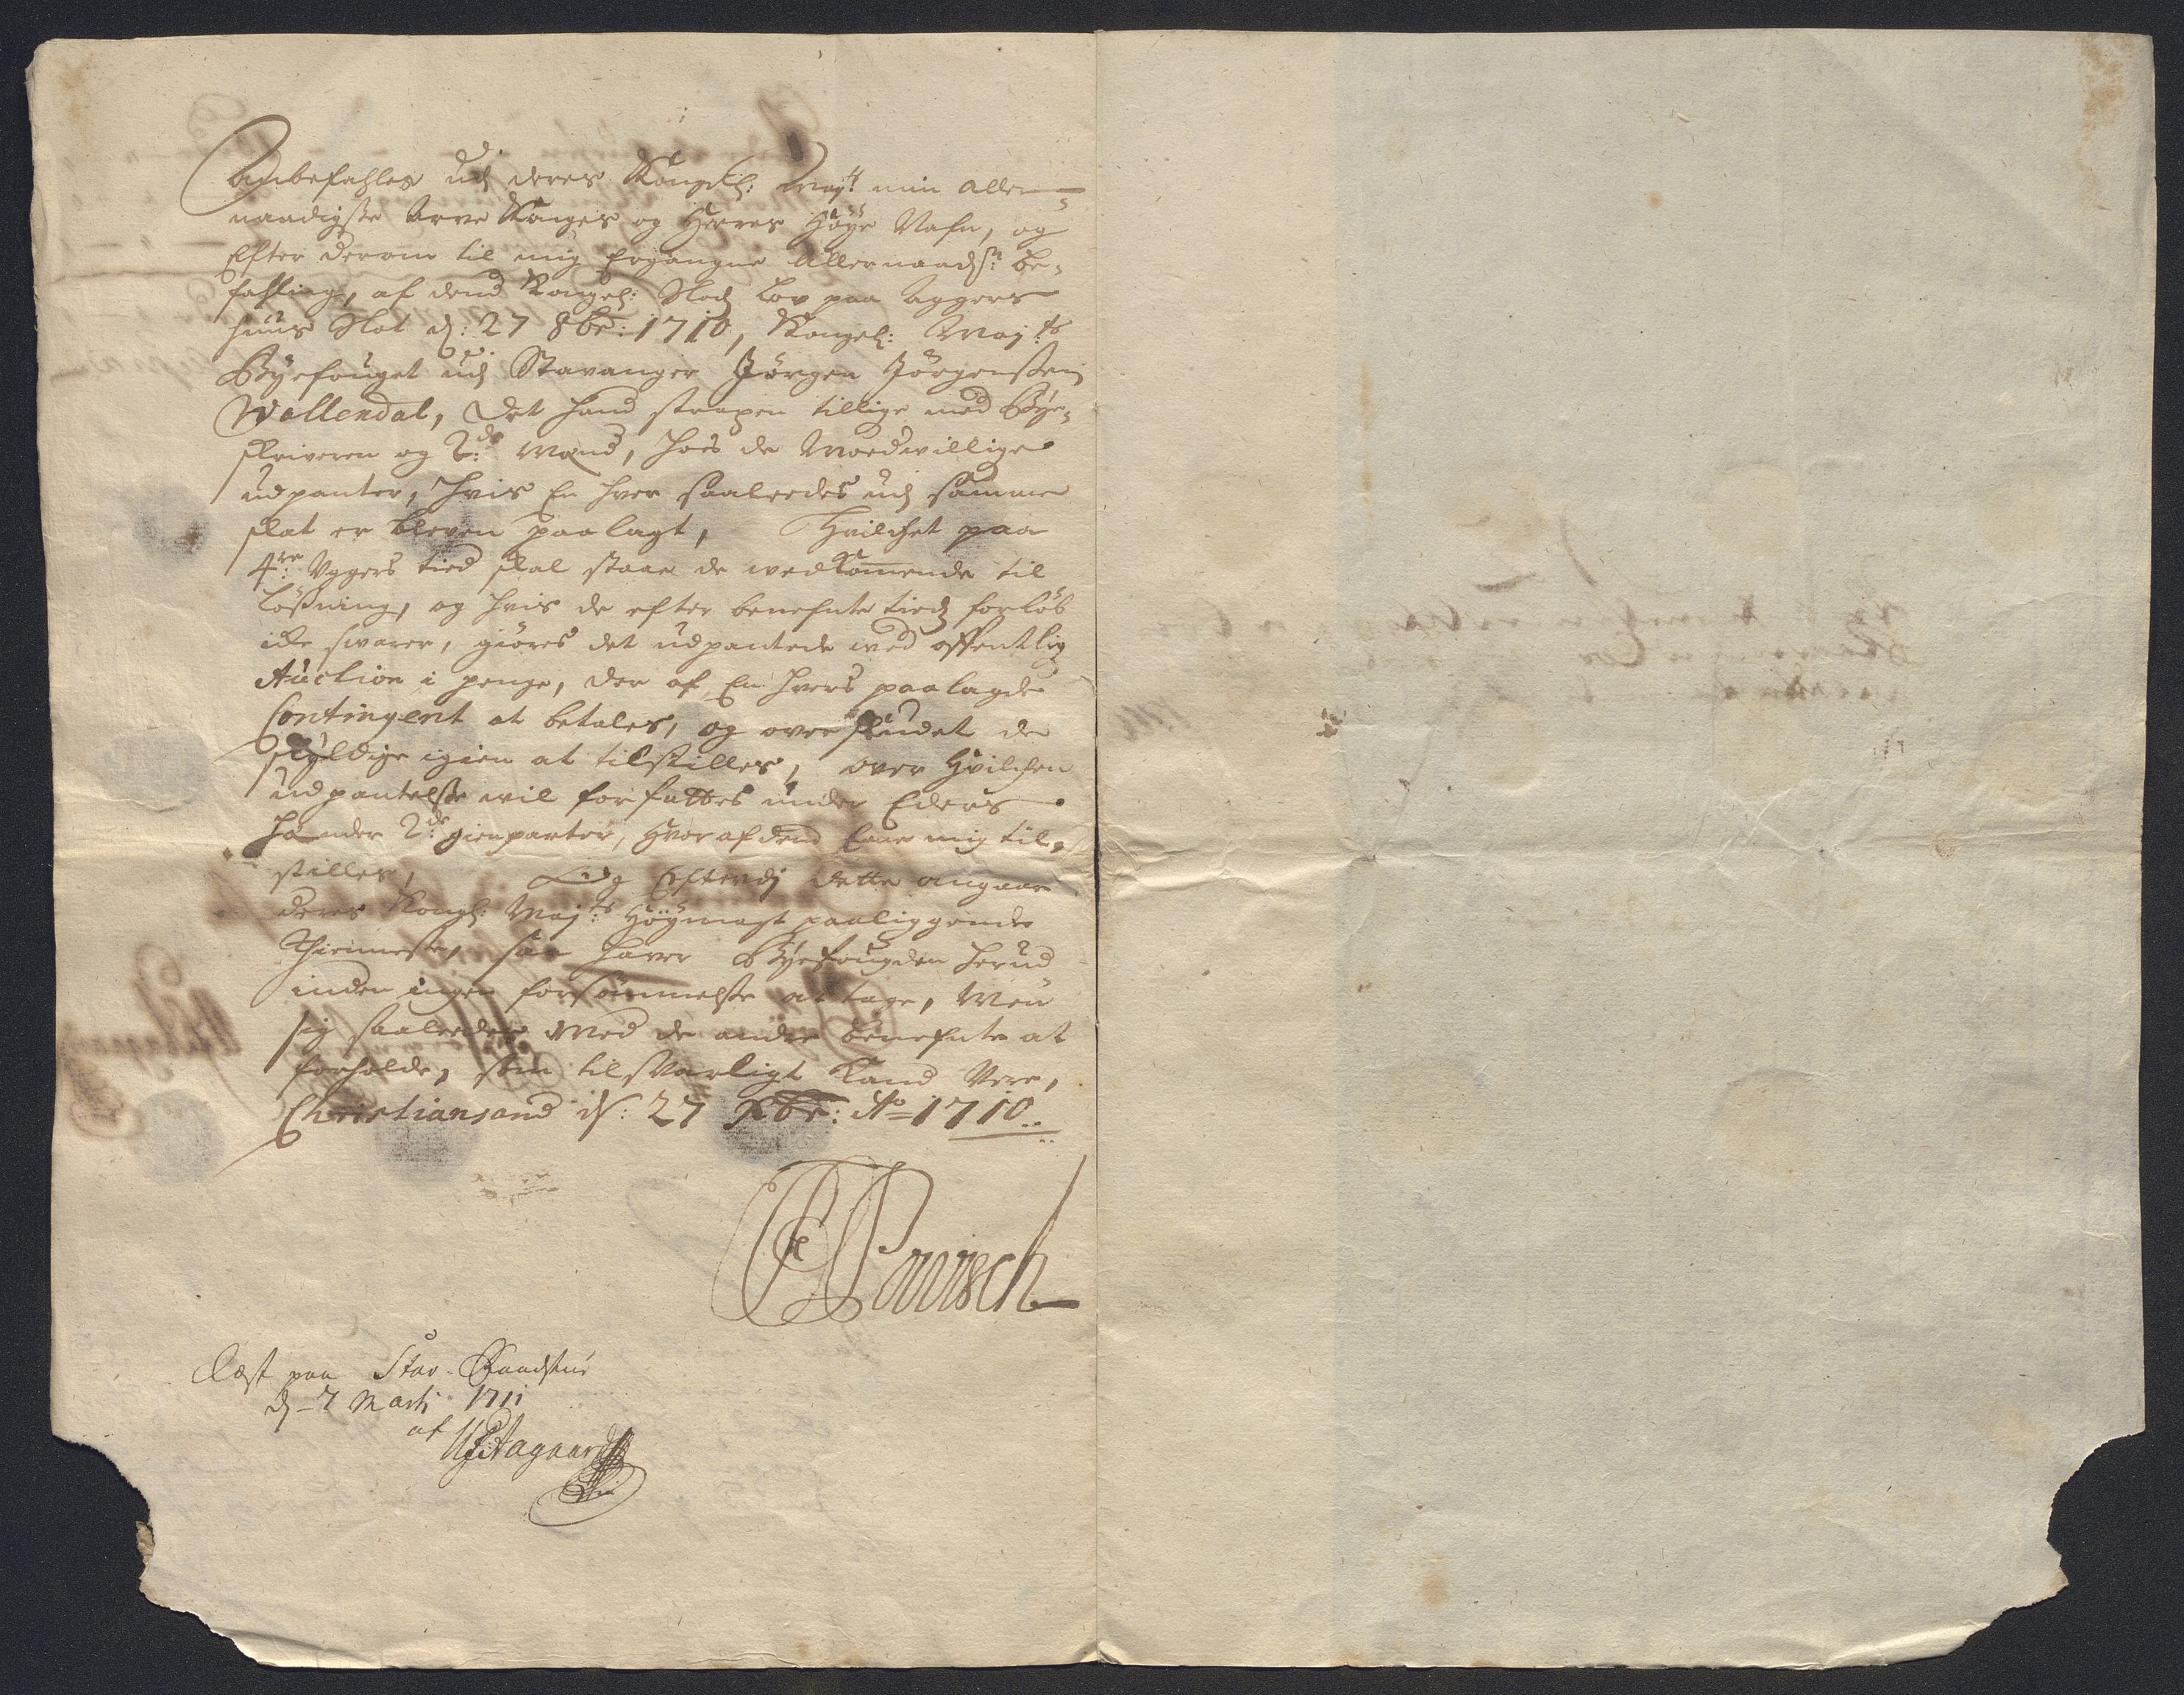 Anbefahles udj deres Kongel: Mayt: min aller¬
naadigste Arve Konges og Herres Höye Nafn, og
Efter derom til mig Ergangne Allernaadst: be¬
fahling, af dend Kongel: Slods Lov paa Aggers
huus Slot d: 27 8br: 1710, Kongel: Mayts:
Byefouget udj Stavanger Jörgen Jörgensen
Wallendal, Det hand straxen tillige med Bye¬
skriveren og 2de: Mænd, hos de Modwillige
udpanter, hvis En hver saaledes udj samme
skat er bleven paalagt, Hvilchet paa
4re: Uggers tied skal staae de wedkomende til
løsning, og hvis de efter benefnte tiedz forløb
icke swarer, giöres det udpantede wed offentlig
Auction i penge, der af En hvers paalagde
Contingent at betales, og overskudet de
skyldige igien at tilstilles, over Hvilchen
udpantelse wil forfattes under Eders
hænder 2de: gienparter, Hvoraf dend Eene mig til¬
stilles, Og Efterdj dette angaar
deres Kongl: Mayts: Höymast paaliggende
Thienneste, saa haver Byefougden herud
inden ingen forsömmelse at tage, Men
sig saaledes Med de andre benefnte at
forholde, som tilsvarligt kand Være,
Christiansand d: 27 Xbr: Ao 1710
Læst paa Stav. Raadstue
d. 7 Marti 1711
af